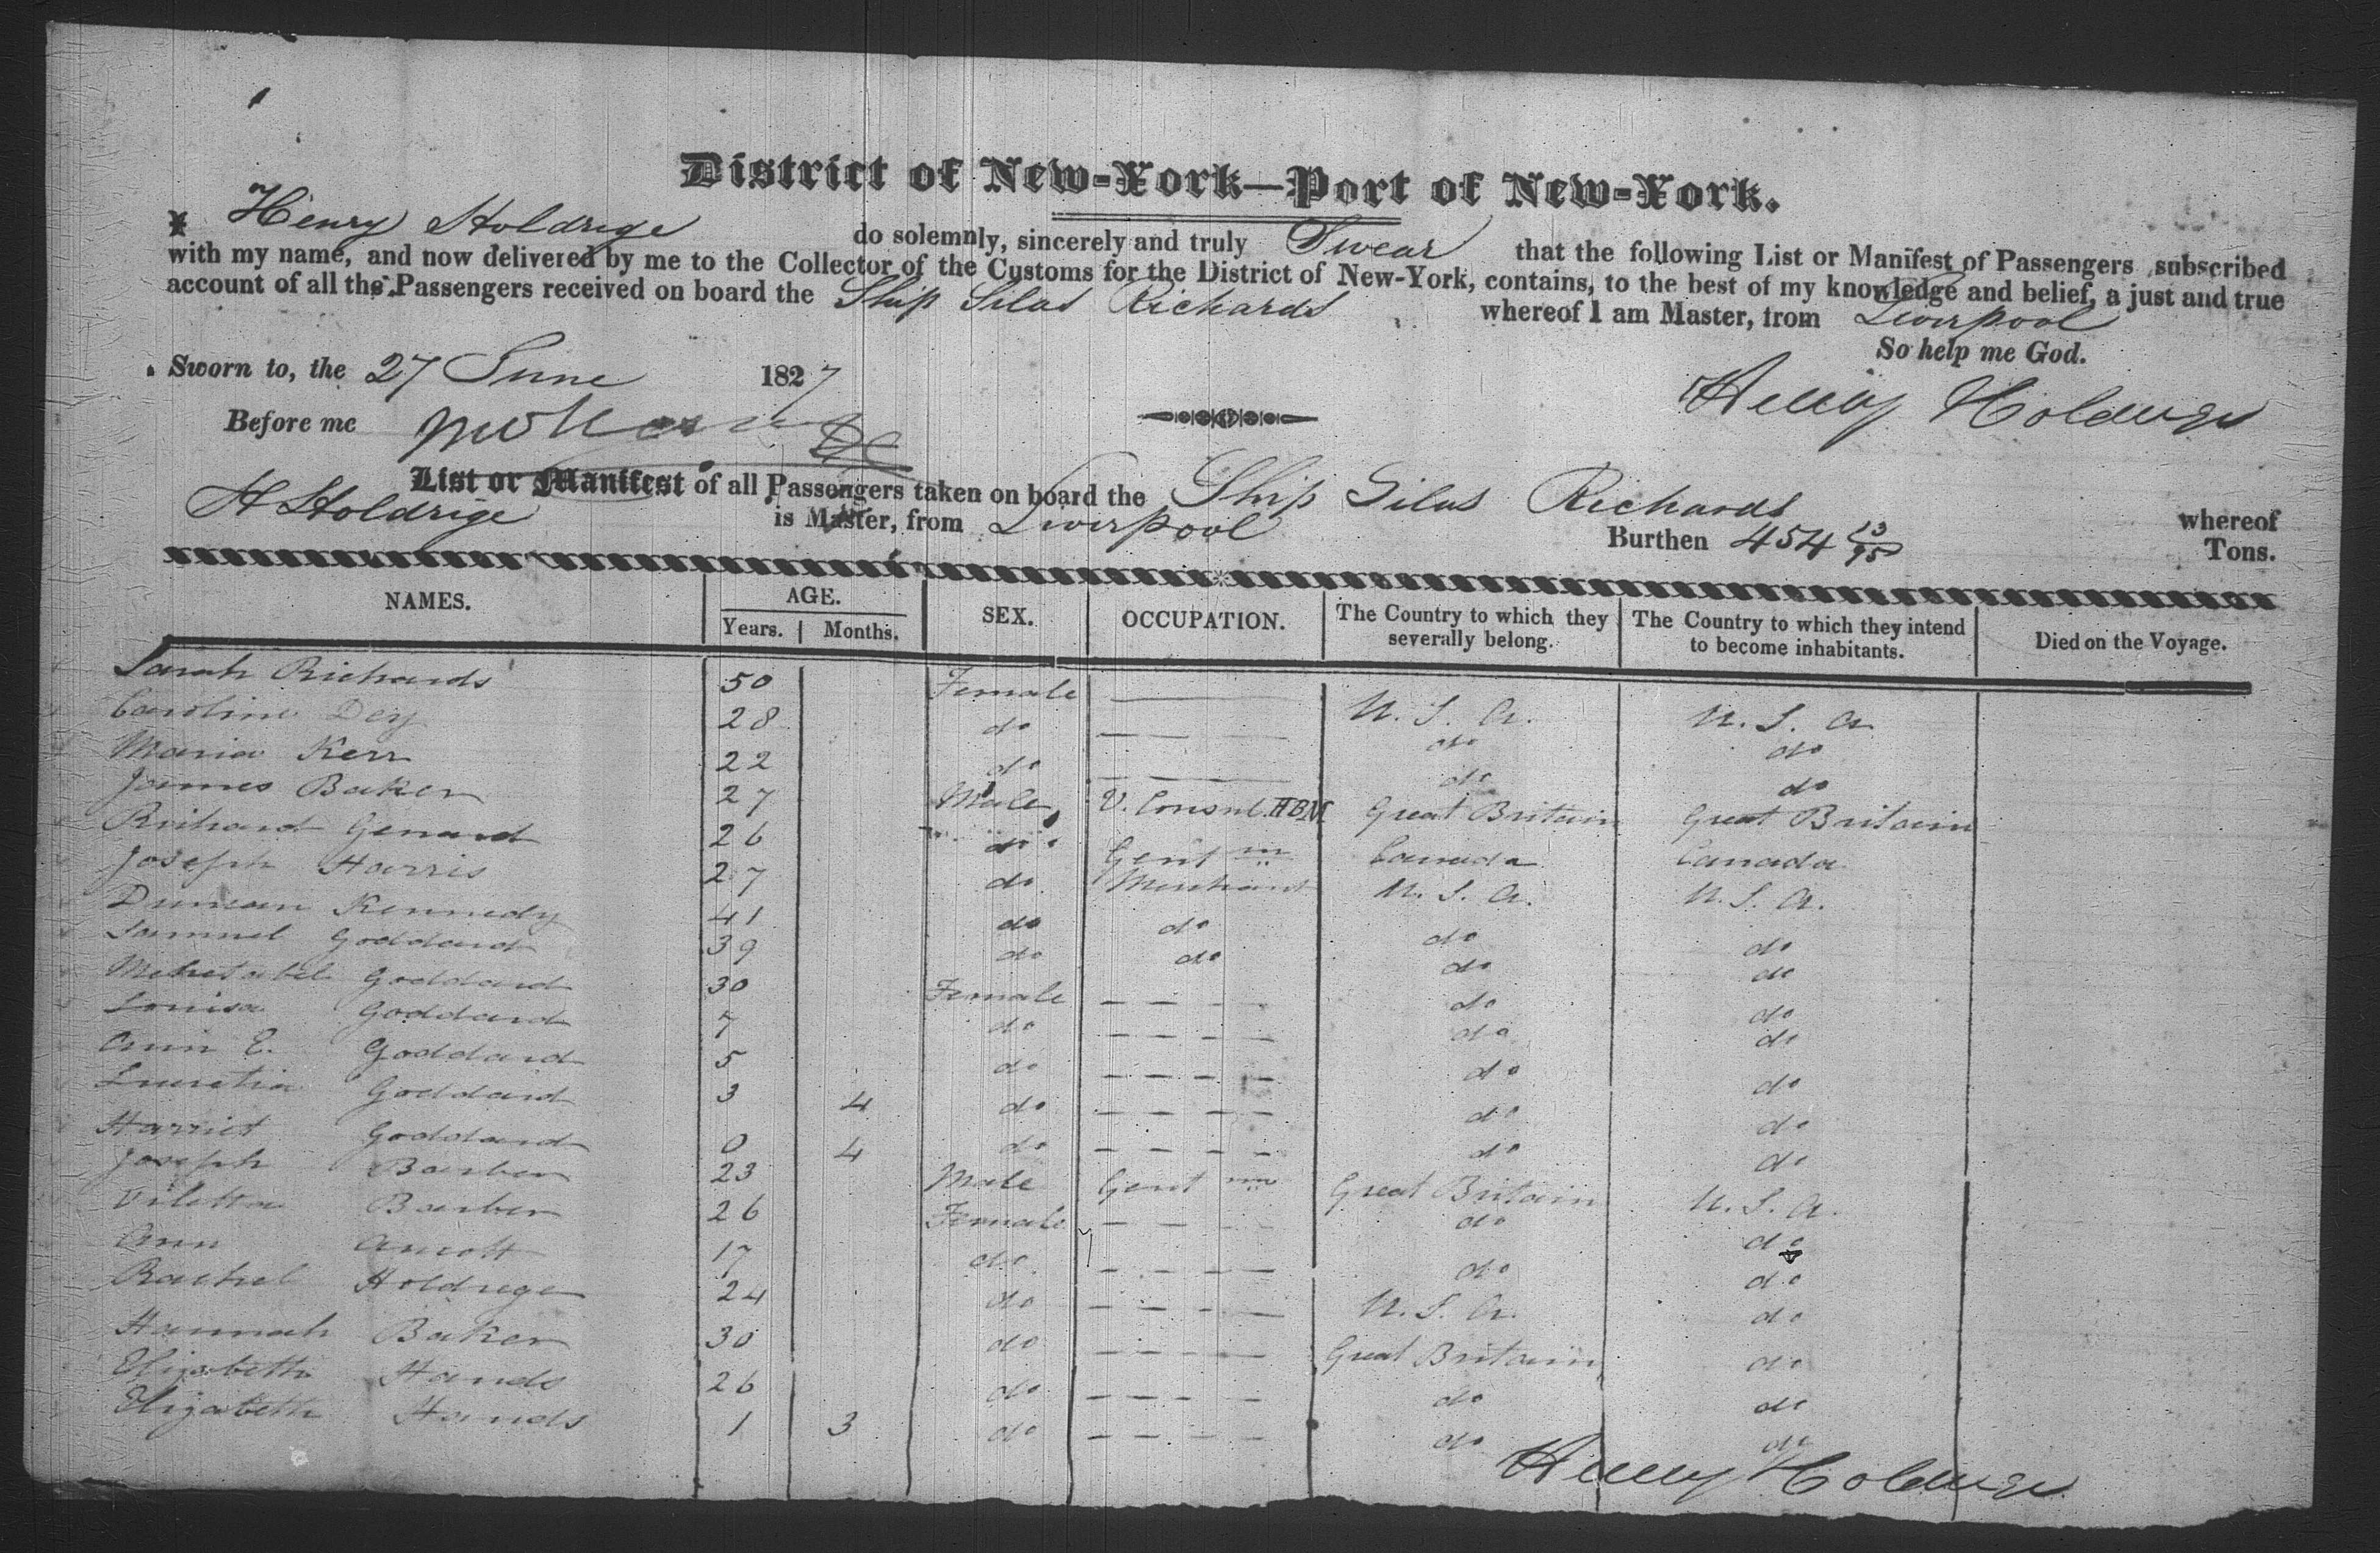 District of New-York—Port of New-York.
I Henry Holdrege do solemnly, sincerely and truly Swear that the following List or Manifest of Passengers subscribed
with my name, and now delivered by me to the Collector of the Customs for the District of New-York, contains, to the best of my knowledge and belief, a just and true
account of all the Passengers received on board the Ship Silas Richards whereof I am Master, from Liverpool
So help me God.
Sworn to, the 27 June 1827
Henry Holdrege
Before me
List or Manifest of all Passengers taken on board the Ship Silas Richards whereof
H Holdrege is Master, from Liverpool Burthen 454 13/95 Tons.
NAMES. AGE. Years. Months. SEX. OCCUPATION. The Country to which they severally belong. The Country to which they intend to become inhabitants. Died on the Voyage.
Sarah Richards 50 Female U. S. A. U. S. A
Caroline Dey 28 do do do
Maria Kerr 22 do do do
James Baker 27 Male V. Consul. HBM Great Britain Great Britain
Richard Gerrard 26 do Gent mn Canada Canada
Joseph Harris 27 do Merchant U. S. A. U. S. A.
Duncan Kennedy 41 do do do do
Samuel Goddard 39 do do do do
Mehetabel Goddard 30 Female do do
Louisa Goddard 7 do do do
Ann E. Goddard 5 do do do
Lucretia Goddard 3 4 do do do
Harriet Goddard 0 4 do do do
Joseph Barber 23 Male Gent mn Great Britain U. S. A.
Viletta Barber 26 Female do do
Ann Arnott 17 do do do
Rachel Holdrege 24 do U. S. A. do
Hannah Baker 30 do Great Britain do
Elizabeth Hands 26 do do do
Elizabeth Hands 1 3 do do do
Henry Holdrege